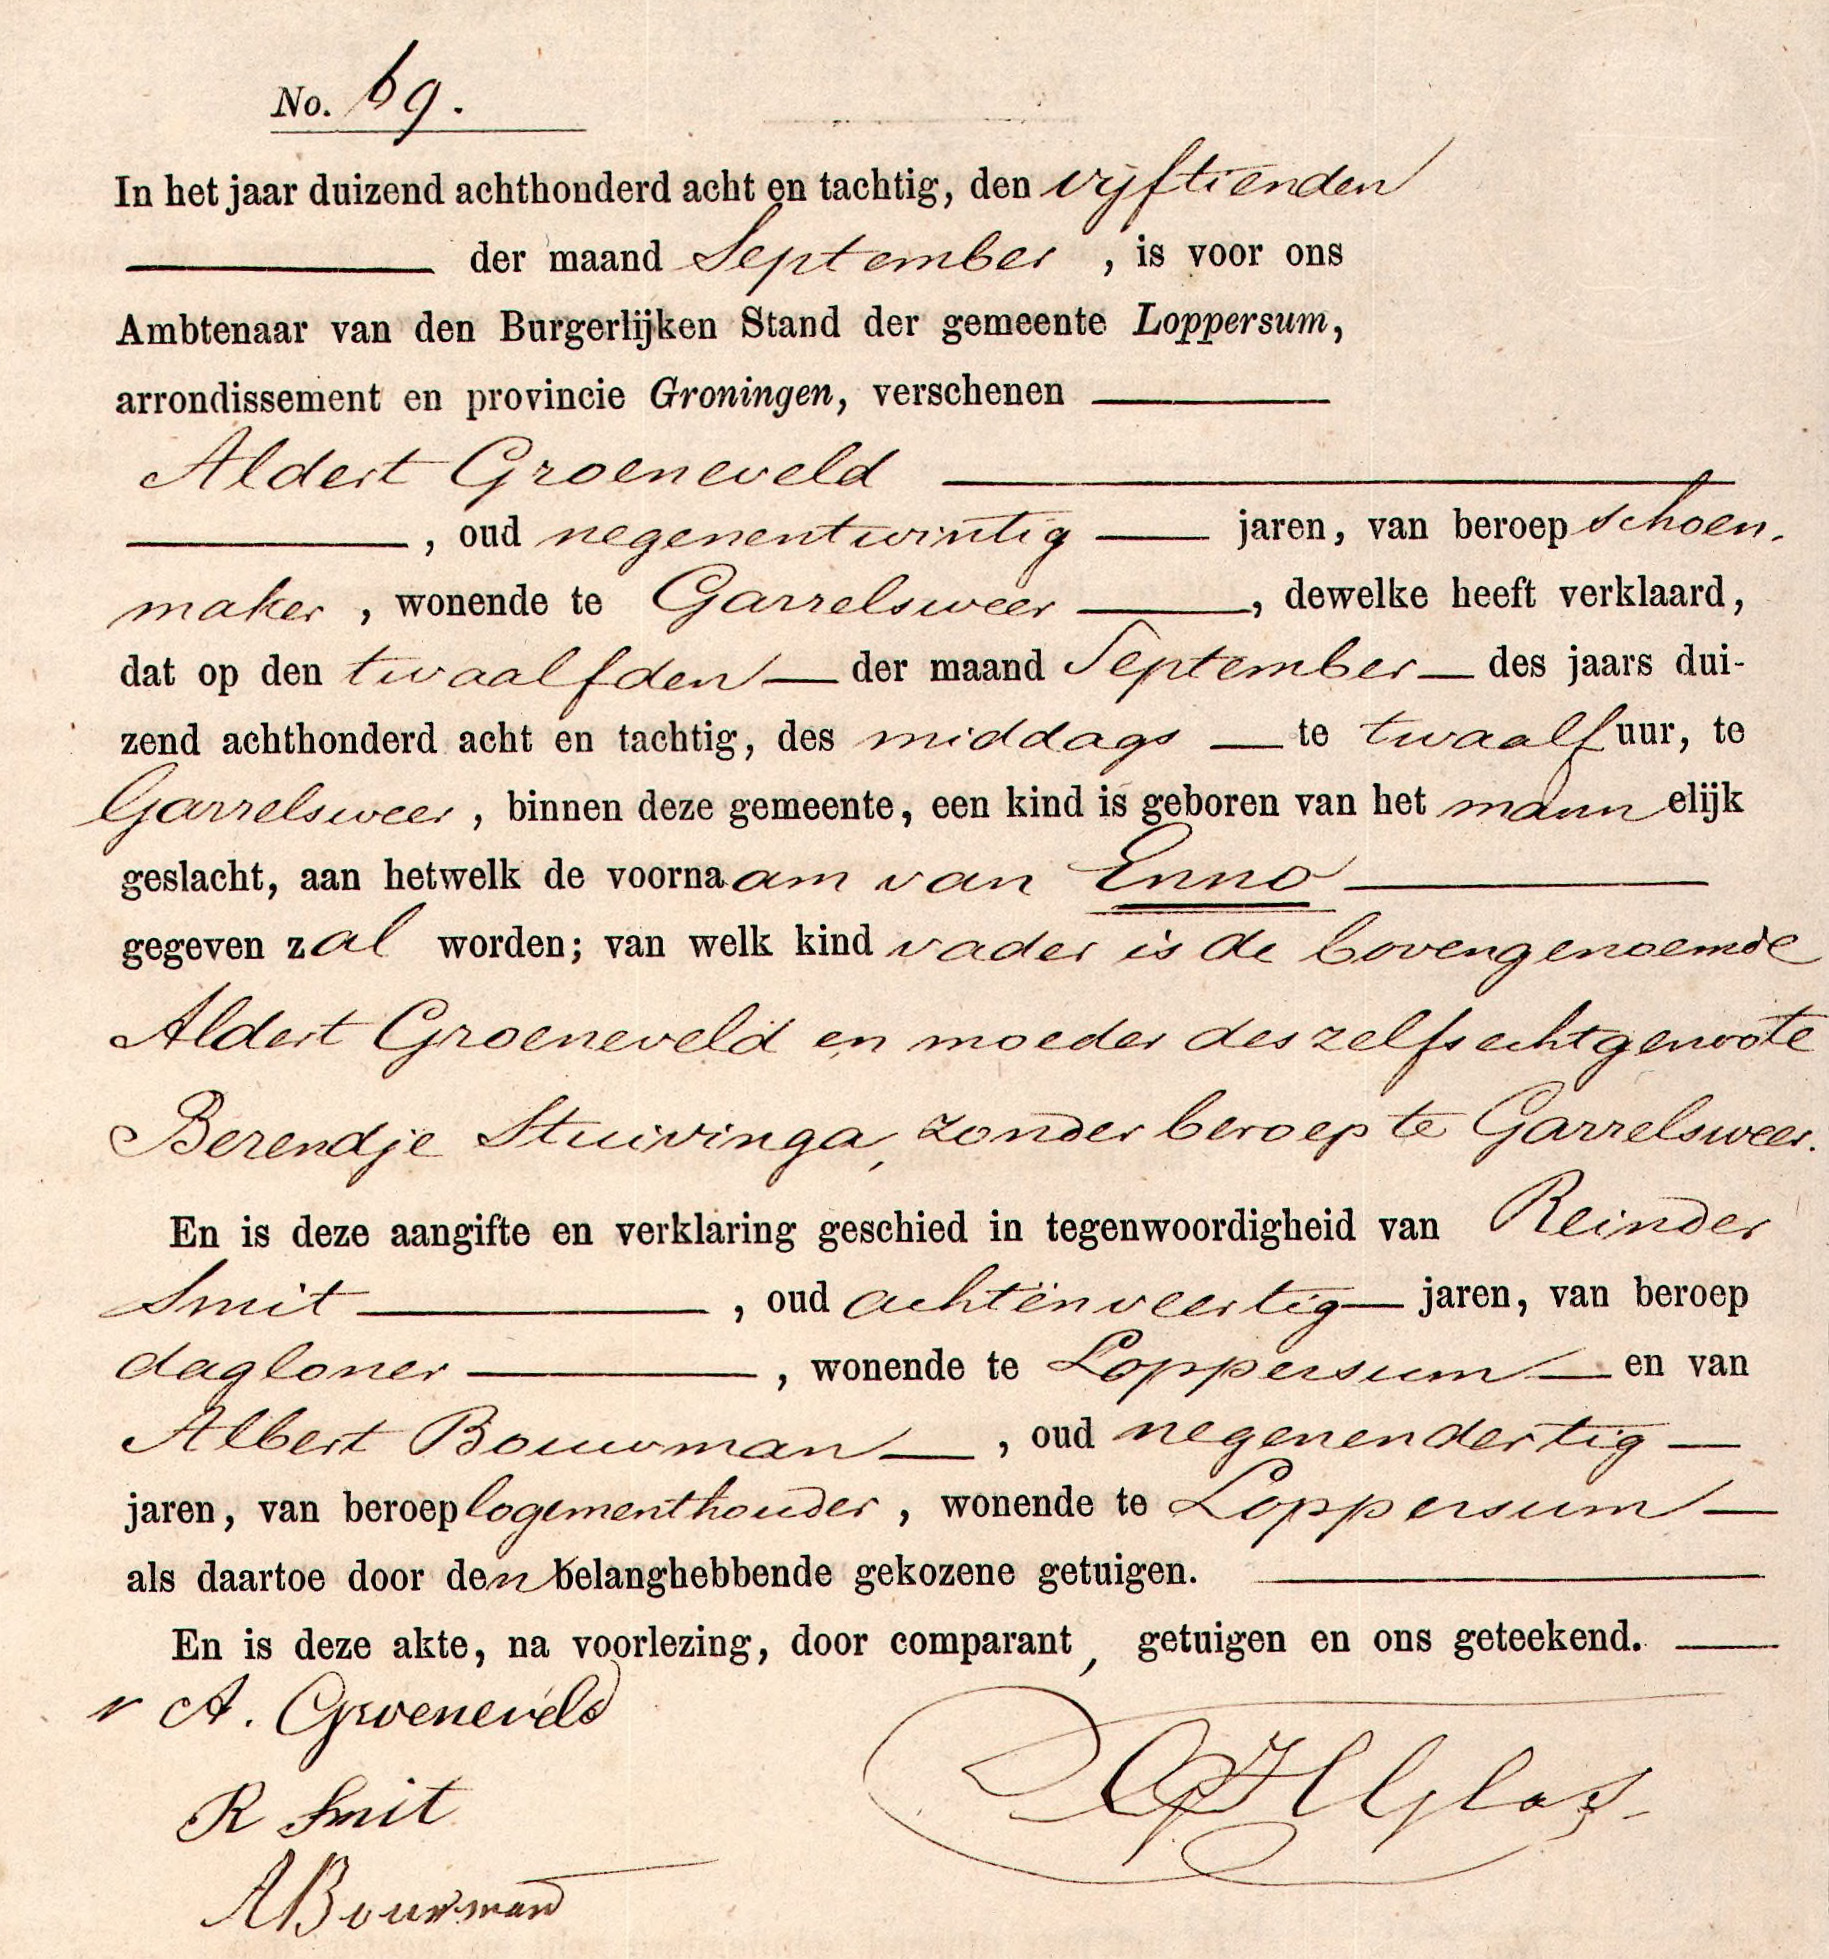 No. 69.
In het jaar duizend achthonderd acht en tachtig, den vijftienden
der maand September, is voor ons
Ambtenaar van den Burgerlijken Stand der gemeente Loppersum,
arrondissement en provincie Groningen, verschenen
Aldert Groeneveld
, oud negenentwintig jaren, van beroep schoen-
maker, wonende te Garrelsweer, dewelke heeft verklaard,
dat op den twaalfden der maand September des jaars dui-
zend achthonderd acht en tachtig, des middags te twaalf uur, te
Garrelsweer, binnen deze gemeente, een kind is geboren van het mannelijk
geslacht, aan hetwelk de voornaam van Enno
gegeven zal worden; van welk kind vader is de bovengenoemde
Aldert Groeneveld en moeder deszelfs echtgenoote
Berendje Stuivinga, zonder beroep te Garrelsweer.
En is deze aangifte en verklaring geschied in tegenwoordigheid van Reinder
Smit, oud achtenveertig jaren, van beroep
dagloner, wonende te Loppersum en van
Albert Bouwman, oud negenendertig
jaren, van beroep logementhouder, wonende te Loppersum
als daartoe door den belanghebbende gekozene getuigen.
En is deze akte, na voorlezing, door comparant, getuigen en ons geteekend.
A. Groeneveld
R Smit
A Bouwman